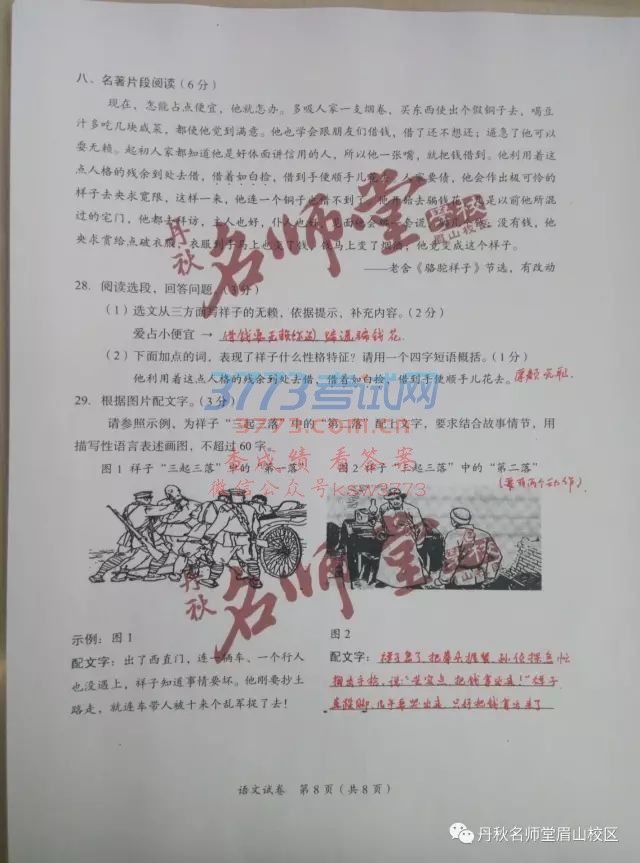 八、名著片段阅读（6分）
现在，怎能占点便宜，他就怎办。多吸人家一支烟卷，买东西使出个假铜子去，喝豆
汁多吃几块咸菜，都使他觉到满意。他也学会跟朋友们借钱，借了还不想还；逼急了他可以
耍无赖。起初人家都知道他是好体面讲信用的人，所以他一张嘴，就把钱借到。他利用着这
点人格的残余到处去借，借着如白捡，借到手便顺手儿花去。人家要债，他会作出极可怜的
样子去央求宽限，这样一来，他连一个铜子也借不到了，他开始去骗钱花。凡是以前他所混
过的宅门，他都去拜访，主人也好，仆人也好，见面他会编一套谎，骗几个钱；没有钱，他
央求赏给点破衣服，衣服到手马上也变了钱，钱马上变了烟酒，他竟变成这个样子。
——老舍《骆驼祥子》节选，有改动
28. 阅读选段，回答问题。（3分）
（1）选文从三方面写祥子的无赖，依据提示，补充内容。（2分）
爱占小便宜 → 借钱要无赖 撒谎骗钱花
（2）下面加点的词，表现了祥子什么性格特征？请用一个四字短语概括。（1分）
他利用着这点人格的残余到处去借，借着如白捡，借到手便顺手儿花去。 厚颜无耻
29. 根据图片配文字。（3分）
请参照示例，为祥子“三起三落”中的“第二落”配上文字，要求结合故事情节，用
描写性语言表述画图，不超过60字。
图1 祥子“三起三落”中的“第一落” 图2 祥子“三起三落”中的“第二落”
示例：图1
配文字：出了西直门，连一辆车、一个行人
也没遇上，祥子知道事情要坏。他刚要抄土
路走，就连车带人被十来个乱军捉了去！
图2
配文字：祥子急了，把拳头握紧，孙侦探急忙
掏出手枪，说“放牢点，把钱拿出来！”祥子
直跺脚，几乎要哭出来，只好把钱拿出来了
语文试卷 第8页（共8页）
丹秋
名师堂
眉山校区
3773考试网
www.3773.com.cn
查成绩 看答案
微信公众号ksw3773
丹秋
名师堂
眉山校区
丹秋名师堂眉山校区